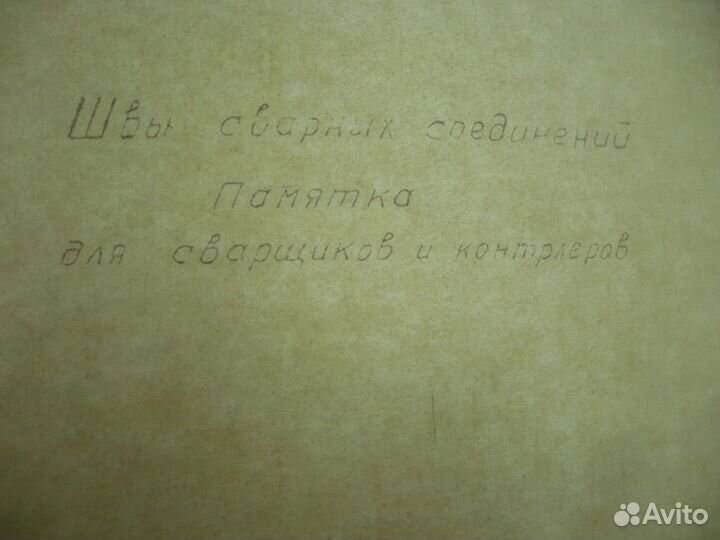 Швы сварных соединений
Памятка
для сварщиков и контрлеров
Avito